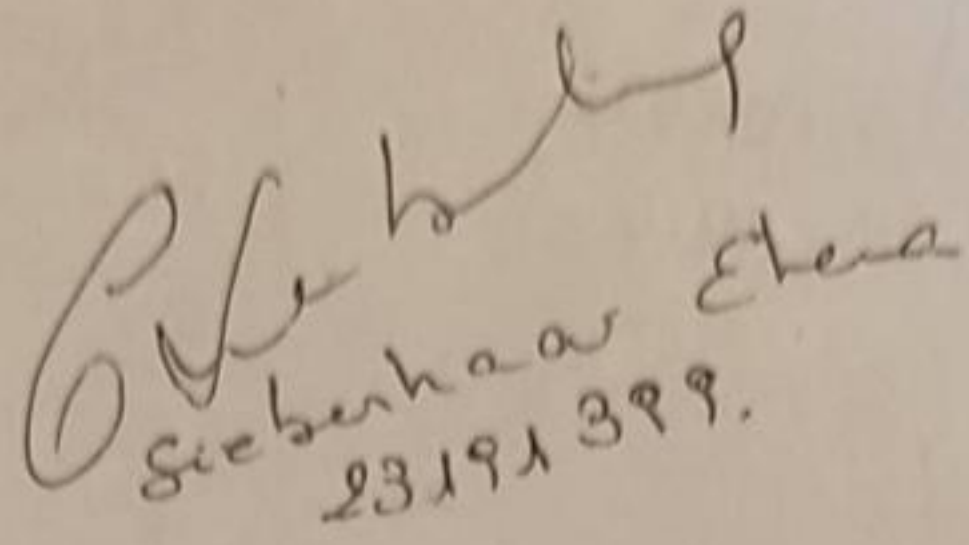 Sieberhaar Elena
23191399.